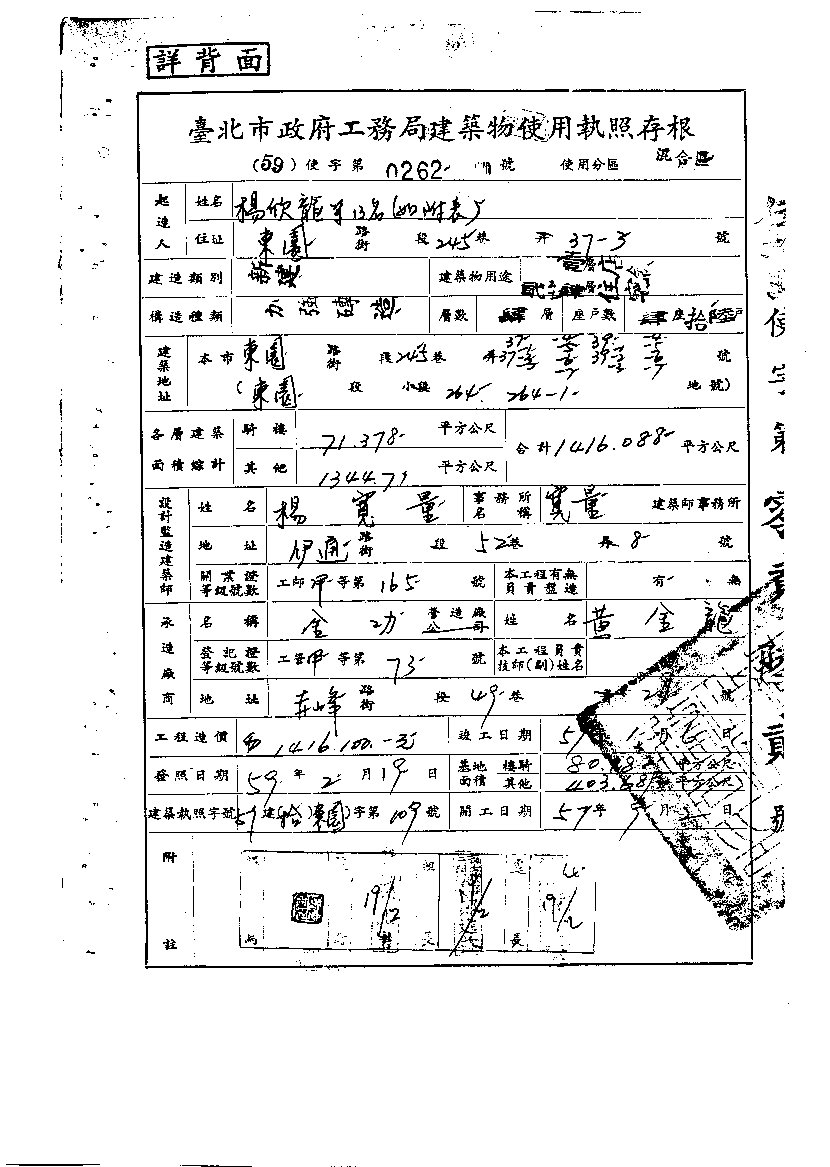 詳背面
臺北市政府工務局建築物使用執照存根
(59)使字第0262號 使用分區 混合區
起造人 姓名 楊欣龍等13名(如附表)
住址 東園 路街 段 245巷 弄 37-3 號
建造類別 新建 建築物用途 壹層住 住宅
構造種類 加強磚造 層數 肆層 座戶數 肆座拾陸戶
建築地址 本市東園 路街 段245巷 弄 號
(東園 段 小段 264. 264-1 地號)
各層建築面積總計 騎樓 71.378 平方公尺 合計1416.088 平方公尺
其他 1344.71 平方公尺
設計監造建築師 姓名 楊寬量 事務所名稱 寬量 建築師事務所
地址 伊通 路街 段 52巷 弄 8 號
開業證等級號數 工師甲等第165 號 本工程有無負責監造 有 無
承造廠商 名稱 金功 營造廠公司 姓名 黃金龍
登記證等級號數 工營甲等第 73 號 本工程負責技師(副)姓名
地址 赤峰 路街 段 49巷 號
工程造價 1416.100.-元 竣工日期 日
發照日期 59年2月19日 基地面積 樓騎 平方公尺
其他 平方公尺
建築執照字號 57建(拾)東園字第109號 開工日期 57年 月 日
附註
19/2
長
19/2
使字第 號